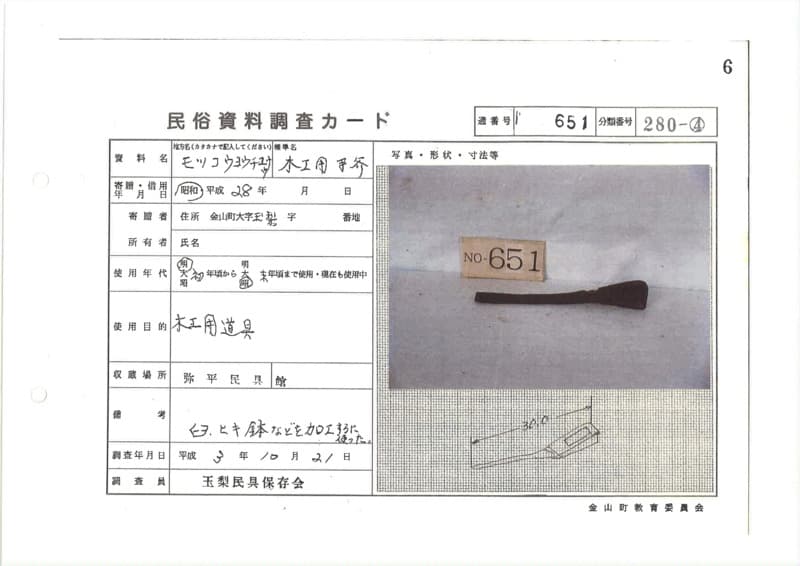 6
民俗資料調査カード
通番号 651 分類番号 280-④
資料名 地方名(カタカナで記入してください) 標準名
モツコウヨウチョウナ 木工用手斧
写真・形状・寸法等
寄贈・借用年月日 昭和 平成 28年 月 日
寄贈者 住所 金山町大字玉梨 字 番地
所有者 氏名
使用年代 明 大 昭 初年頃から 明 大 昭 末年頃まで使用・現在も使用中
使用目的 木工用道具
収蔵場所 弥平民具館
備考 臼、ヒキ鉢などを加工するに使った。
調査年月日 平成 3年 10月 21日
調査員 玉梨民具保存会
NO-651
30.0
金山町教育委員会